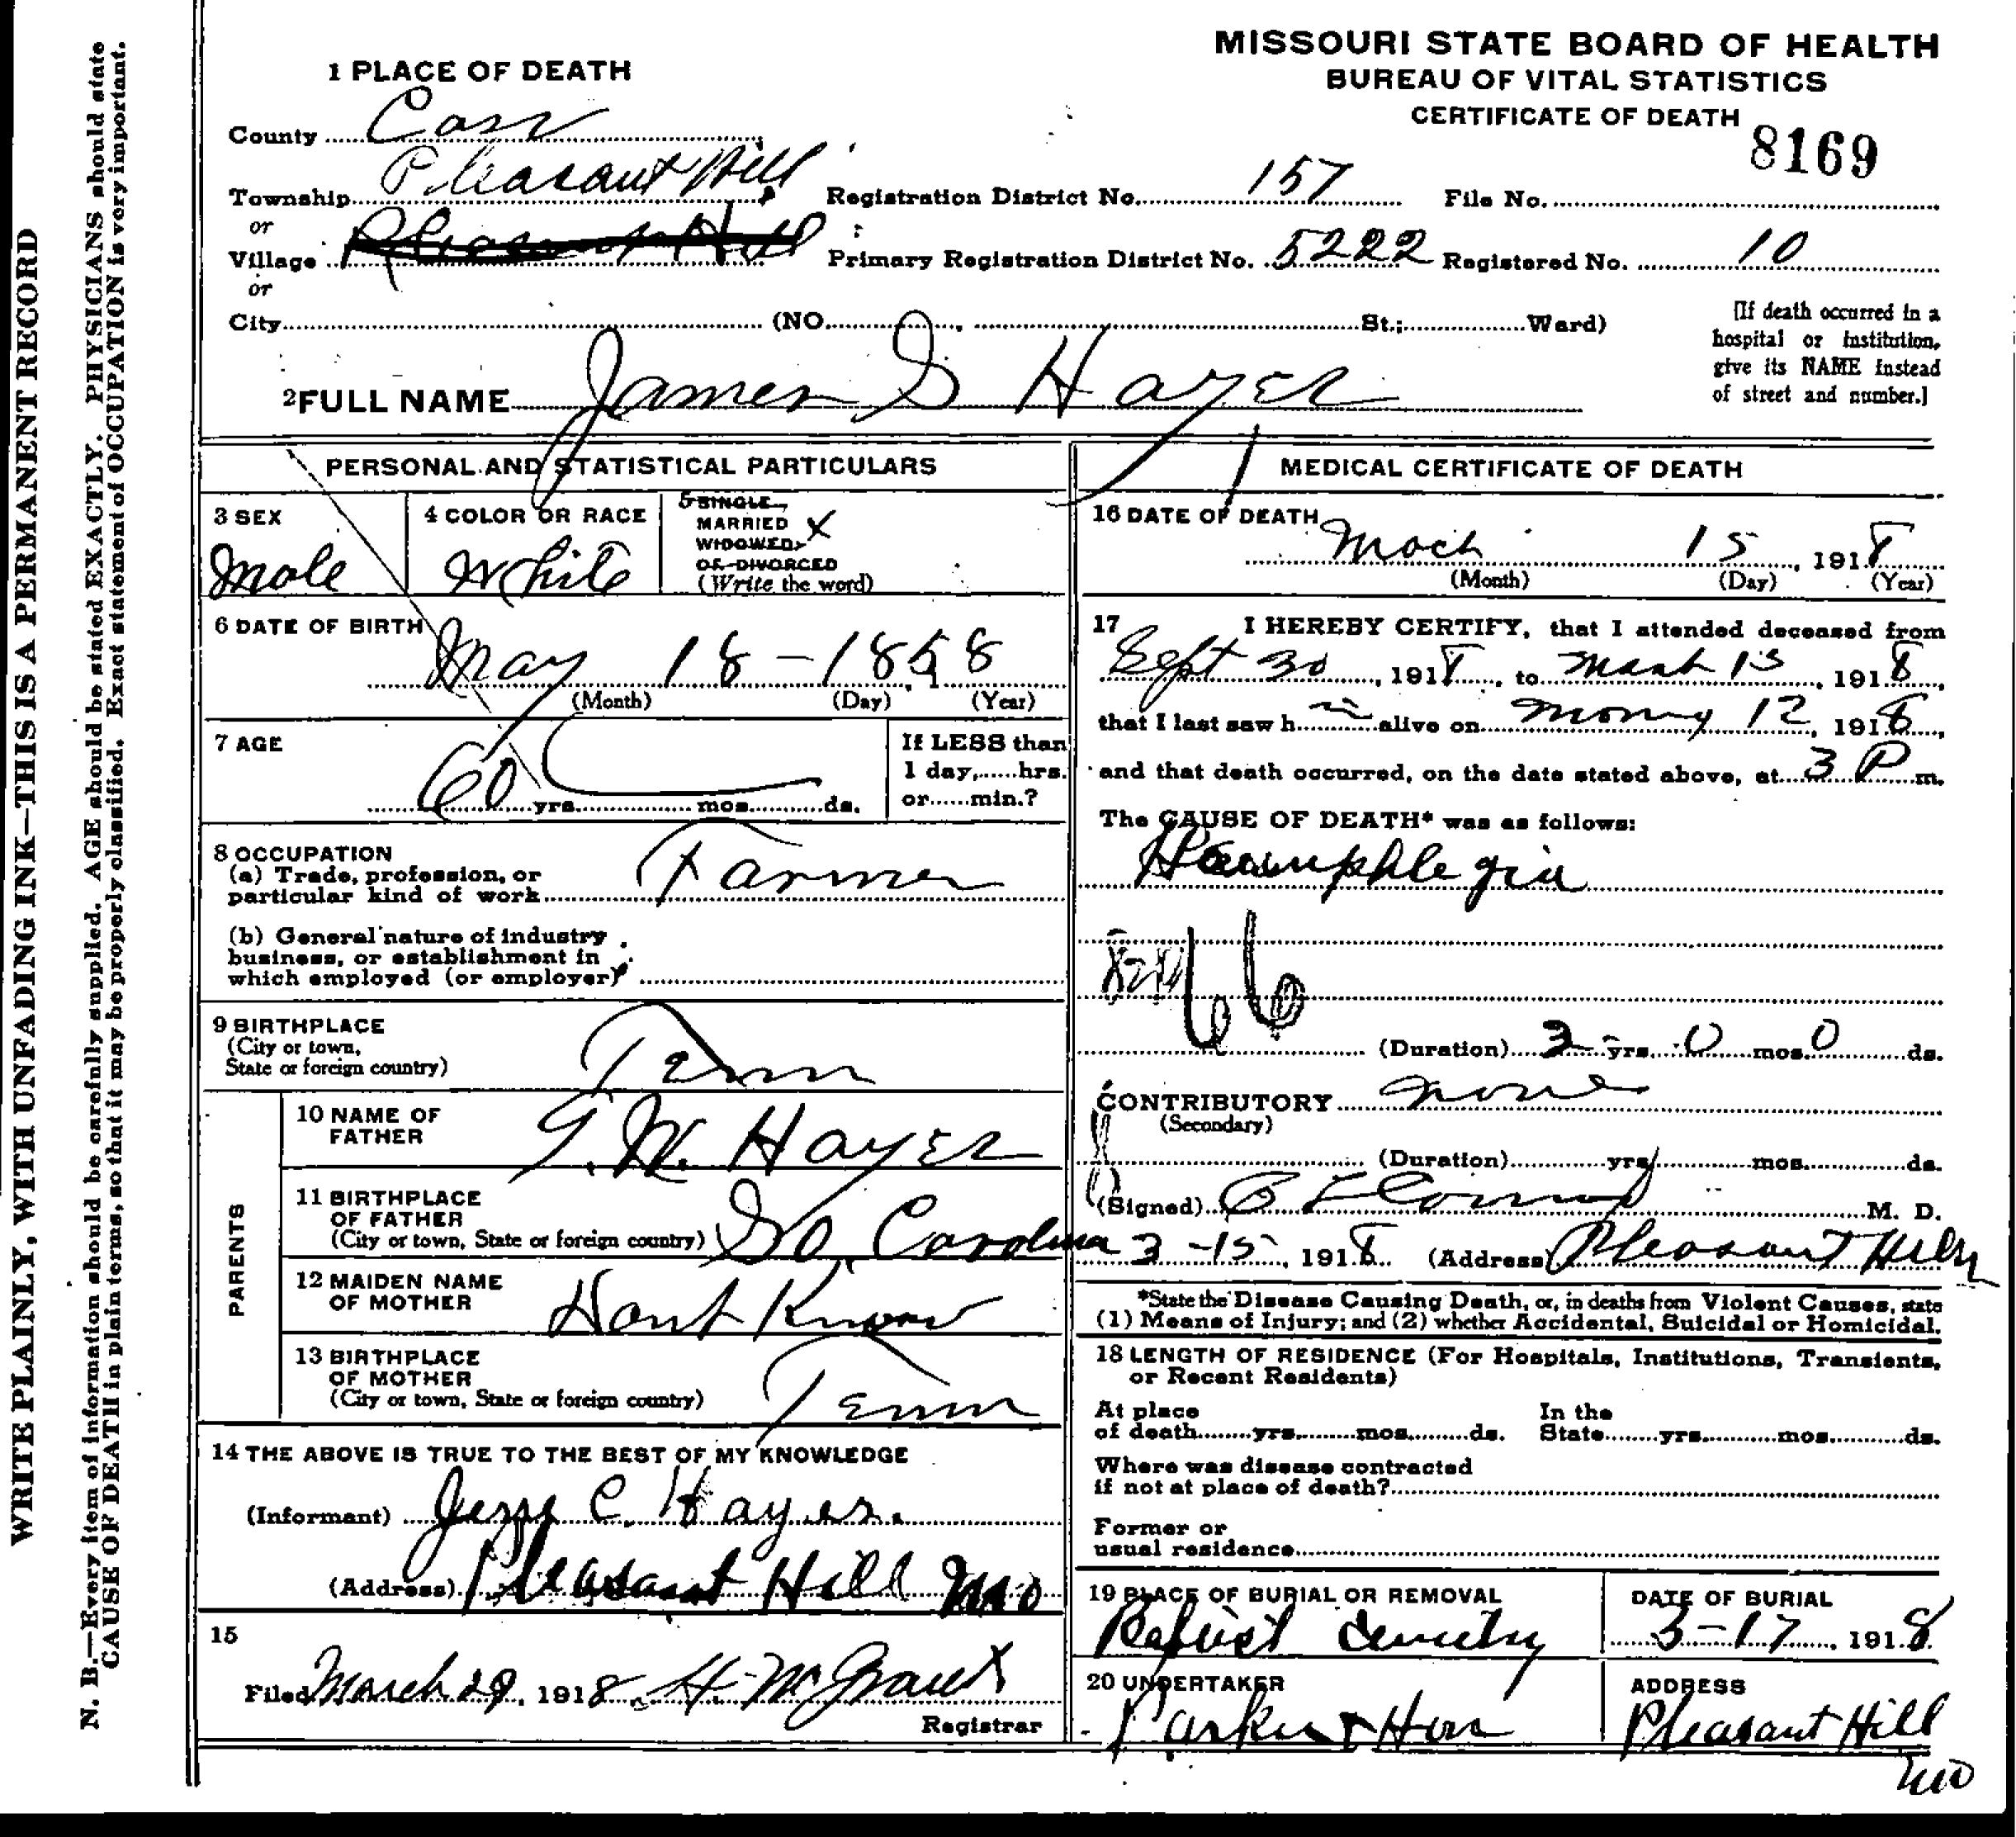 WRITE PLAINLY, WITH UNFADING INK—THIS IS A PERMANENT RECORD
N. B.—Every item of information should be carefully supplied. AGE should be stated EXACTLY. PHYSICIANS should state
CAUSE OF DEATH in plain terms, so that it may be properly classified. Exact statement of OCCUPATION is very important.
MISSOURI STATE BOARD OF HEALTH
BUREAU OF VITAL STATISTICS
CERTIFICATE OF DEATH
8169
1 PLACE OF DEATH
County Cass
Township Pleasant Hill Registration District No. 157 File No.
or
Village Pleasant Hill Primary Registration District No. 5222 Registered No. 10
or
City (NO. St.; Ward)
[If death occurred in a
hospital or institution,
give its NAME instead
of street and number.]
2 FULL NAME James S Hayes
PERSONAL AND STATISTICAL PARTICULARS
3 SEX
Male
4 COLOR OR RACE
White
5 SINGLE,
MARRIED X
WIDOWED,
OR DIVORCED
(Write the word)
6 DATE OF BIRTH
May 18-1858
(Month) (Day) (Year)
7 AGE
60 yrs. mos. ds.
If LESS than
1 day, hrs.
or min.?
8 OCCUPATION
(a) Trade, profession, or
particular kind of work Farmer
(b) General nature of industry
business, or establishment in
which employed (or employer)
9 BIRTHPLACE
(City or town,
State or foreign country) Tenn
PARENTS
10 NAME OF
FATHER
Hayes
11 BIRTHPLACE
OF FATHER
(City or town, State or foreign country) So. Carolina
12 MAIDEN NAME
OF MOTHER
Dont Know
13 BIRTHPLACE
OF MOTHER
(City or town, State or foreign country) Tenn
14 THE ABOVE IS TRUE TO THE BEST OF MY KNOWLEDGE
(Informant) Jesse C. Hayes.
(Address) Pleasant Hill Mo
15
Filed March 29, 1918. H. McGrant
Registrar
MEDICAL CERTIFICATE OF DEATH
16 DATE OF DEATH
15, 1918
(Month) (Day) (Year)
17 I HEREBY CERTIFY, that I attended deceased from
Sept 30, 191 to 15, 1918,
that I last saw h alive on 12, 1918,
and that death occurred, on the date stated above, at 3 P m.
The CAUSE OF DEATH* was as follows:
66
(Duration) yrs. 0 mos. 0 ds.
CONTRIBUTORY none
(Secondary)
(Duration) yrs. mos. ds.
(Signed) M. D.
3-15, 1918 (Address) Pleasant Hill
*State the Disease Causing Death, or, in deaths from Violent Causes, state
(1) Means of Injury; and (2) whether Accidental, Suicidal or Homicidal.
18 LENGTH OF RESIDENCE (For Hospitals, Institutions, Transients,
or Recent Residents)
At place In the
of death yrs. mos. ds. State yrs. mos. ds.
Where was disease contracted
if not at place of death?
Former or
usual residence
19 PLACE OF BURIAL OR REMOVAL
DATE OF BURIAL
3-17, 1918
20 UNDERTAKER
ADDRESS
Pleasant Hill
Mo